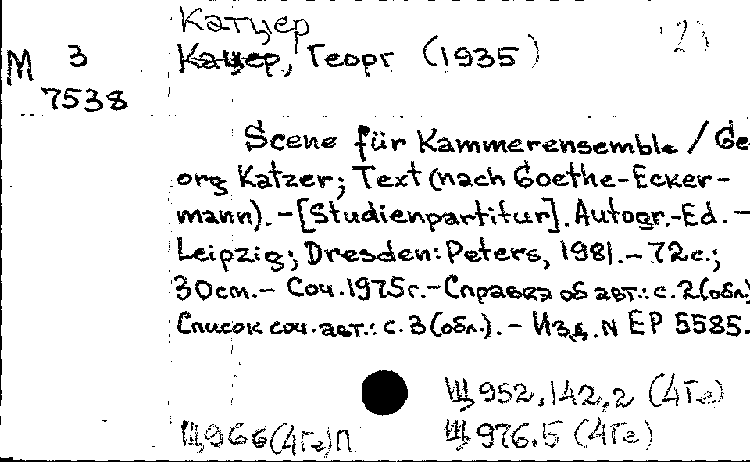 Катцер
М 3 Кацер, Георг (1935)
7538
Scene für Kammerensemble / Ge-
org Katzer; Text (nach Goethe-Ecker-
mann). - [Studienpartitur]. Autogr.-Ed. -
Leipzig; Dresden: Peters, 1981. - 72с.;
30cm. - Соч. 1975г. - Справка об авт.: с. 2 (обл.)
Список соч. авт.: с. 3 (обл.). - Изд. N EP 5585.
Щ952,142,2 (4Ге)
Щ966(4Ге)П Щ976.5 (4Ге)